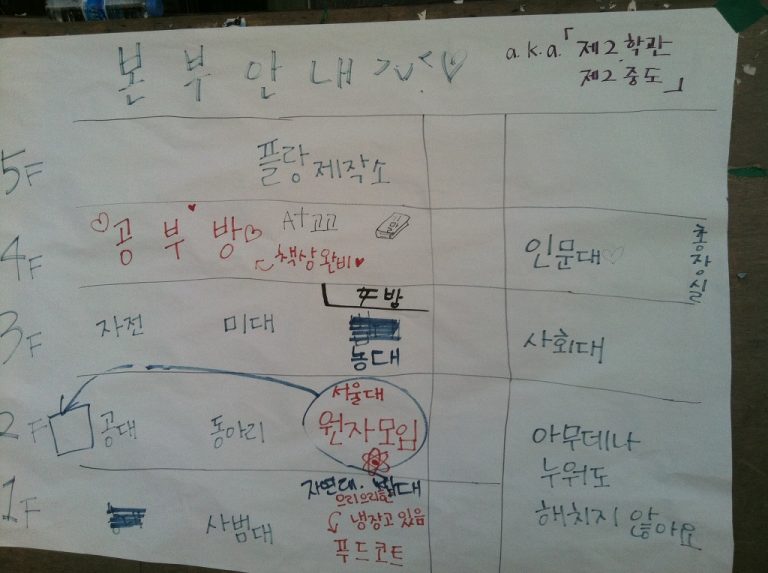 본부안내 >v<♡
a.k.a.「제2학관
제2중도」
5F
플랑제작소
4F
공부방
A+고고
책상완비♥
인문대♡
화장실
3F
자전
미대
주방
농대
사회대
2F
공대
동아리
서울대
원자모임
아무데나
누워도
해치지 않아요
1F
사범대
자연대.
으리으리한
냉장고있음
푸드코트